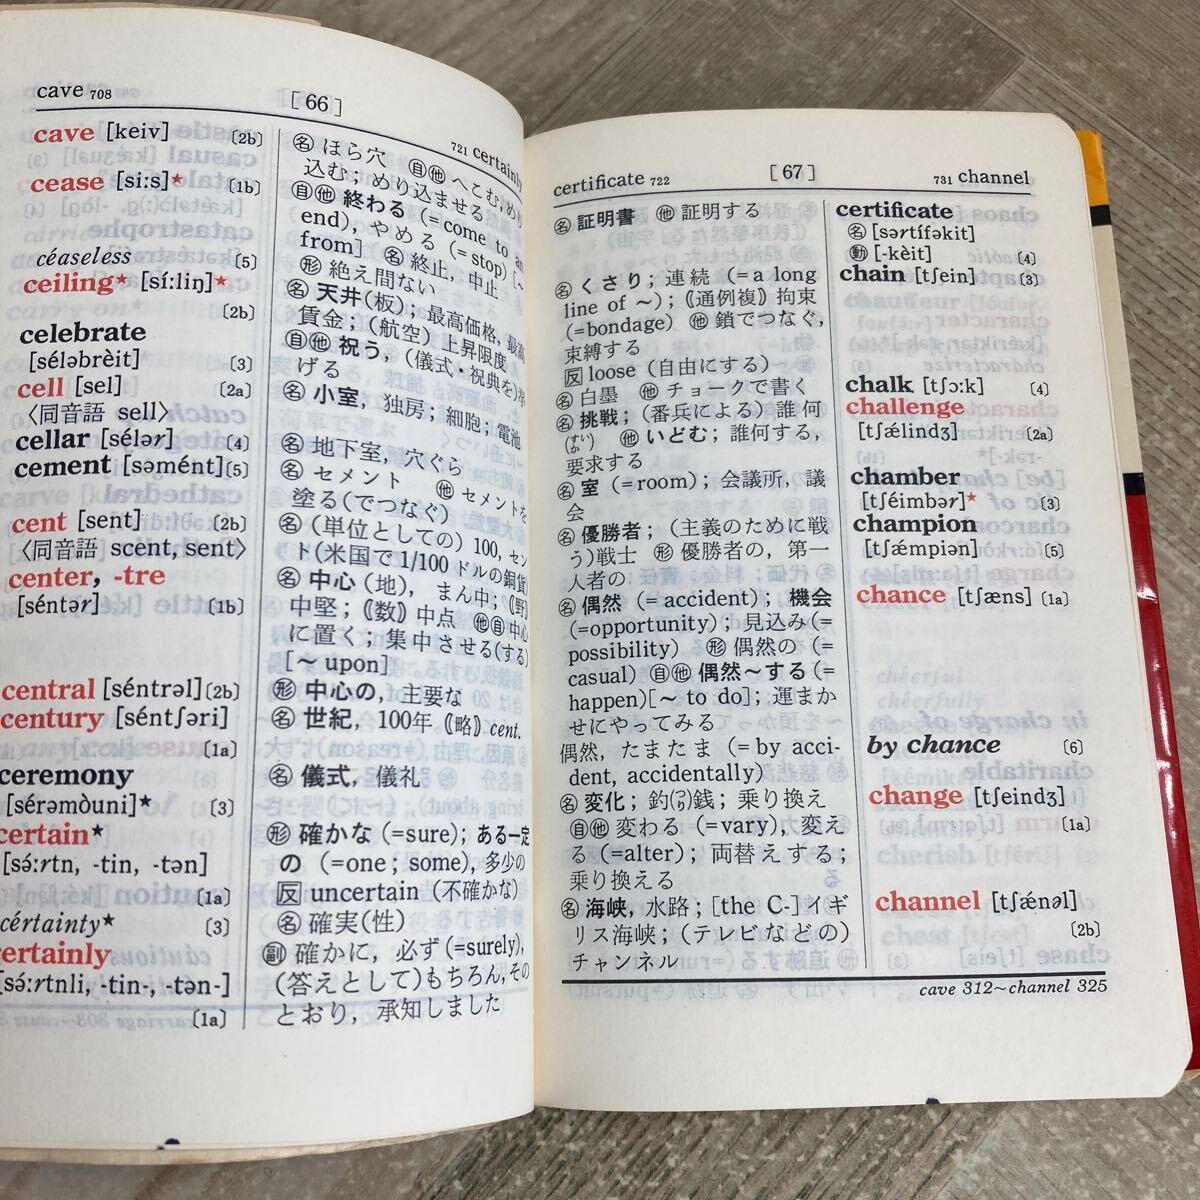 cave 708
[66]
721 certainly
cave [keiv] (2b)
cease [si:s]* (1b)
céaseless (5)
ceiling* [síːliŋ]* (2b)
celebrate
[séləbrèit] (3)
cell [sel] (2a)
〈同音語 sell〉
cellar [sélər] (4)
cement [səmént] (5)
cent [sent] (2b)
〈同音語 scent, sent〉
center, -tre
[séntər] (1b)
central [séntrəl] (2b)
century [séntʃəri]
(1a)
ceremony
[sérəmòuni]* (3)
certain*
[sə́ːrtn, -tin, -tən]
(1a)
cértainty* (3)
certainly
[sə́ːrtnli, -tin-, -tən-]
(1a)
名 ほら穴 自他 へこむ, めり
込む; めり込ませる
自他 終わる (=come to an
end), やめる (=stop) [~
from] 名 終止, 中止
形 絶え間ない
名 天井(板); 最高価格, 最高
賃金; (航空) 上昇限度
自他 祝う, (儀式・祝典を)挙
げる
名 小室, 独房; 細胞; 電池
名 地下室, 穴ぐら
名 セメント 他 セメントを
塗る(でつなぐ)
名 (単位としての) 100, セン
ト(米国で1/100ドルの銅貨)
名 中心 (地), まん中; 《野》
中堅; 《数》中点 他自 中心
に置く; 集中させる(する)
[~ upon]
形 中心の, 主要な
名 世紀, 100年《略》cent.
名 儀式, 儀礼
形 確かな (=sure); ある一定
の (=one; some), 多少の
反 uncertain (不確かな)
名 確実(性)
副 確かに, 必ず(=surely),
(答えとして)もちろん, その
とおり, 承知しました
certificate 722
[67]
731 channel
名 証明書 他 証明する
名 くさり; 連続 (=a long
line of ~); 《通例複》拘束
(=bondage) 他 鎖でつなぐ,
束縛する
反 loose (自由にする)
名 白墨 他 チョークで書く
名 挑戦; (番兵による) 誰何
(すいか) 他 いどむ; 誰何する,
要求する
名 室 (=room); 会議所, 議
会
名 優勝者; (主義のために戦
う)戦士 形 優勝者の, 第一
人者の
名 偶然 (=accident); 機会
(=opportunity); 見込み(=
possibility) 形 偶然の (=
casual) 自他 偶然~する (=
happen)[~ to do]; 運まか
せにやってみる
偶然, たまたま (=by acci-
dent, accidentally)
名 変化; 釣(つり)銭; 乗り換え
自他 変わる (=vary), 変え
る (=alter); 両替えする;
乗り換える
名 海峡, 水路; [the C-]イギ
リス海峡; (テレビなどの)
チャンネル
certificate
名 [sərtífəkit]
動 [-kèit] (4)
chain [tʃein] (3)
chalk [tʃɔːk] (4)
challenge
[tʃǽlindʒ] (2a)
chamber
[tʃéimbər]* (3)
champion
[tʃǽmpiən] (5)
chance [tʃæns] (1a)
by chance (6)
change [tʃeindʒ]
(1a)
channel [tʃǽnəl]
(2b)
cave 312~channel 325